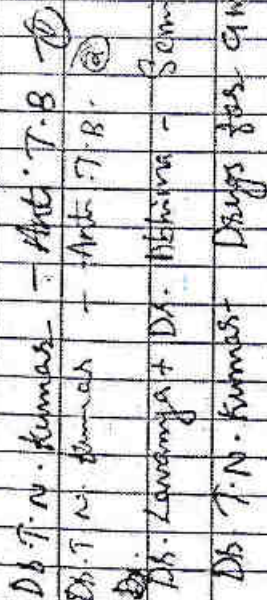 Dr. T. N. Kumar - Anti T.B ①
Dr. T. N. Kumar - Anti T.B. ②
Dr.
Dr. Lavanya + Dr. Abhima - Sem
Dr. T. N. Kumar Drugs for